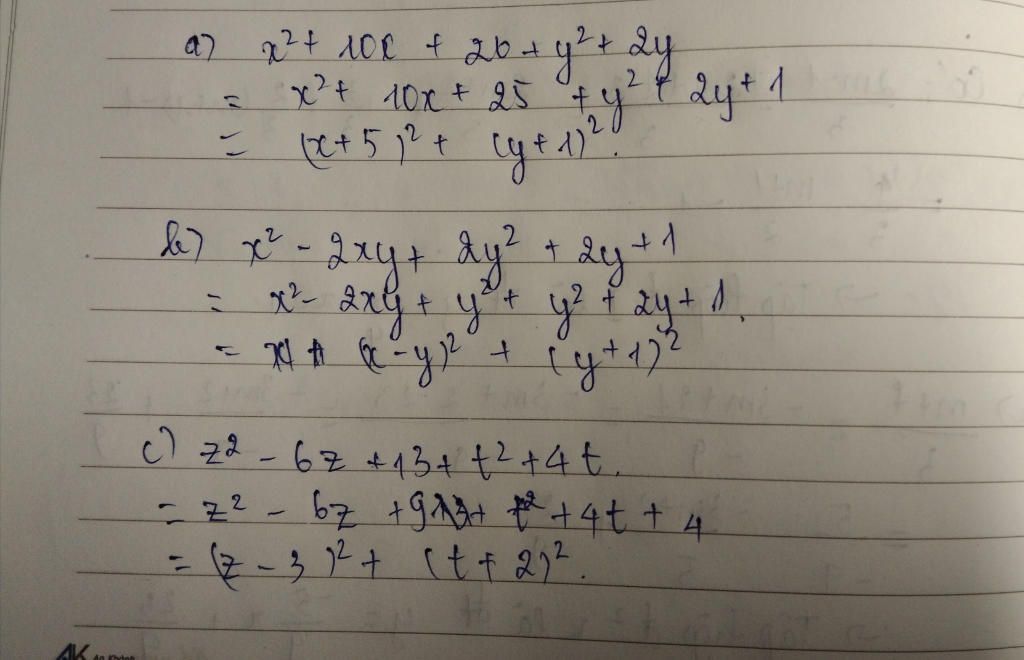 a) x² + 10x + 26 + y² + 2y
= x² + 10x + 25 + y² + 2y + 1
= (x + 5)² + (y + 1)².
b) x² - 2xy + 2y² + 2y + 1
= x² - 2xy + y² + y² + 2y + 1.
= (x - y)² + (y + 1)²
c) z² - 6z + 13 + t² + 4t.
= z² - 6z + 9 + t² + 4t + 4
= (z - 3)² + (t + 2)².
AK